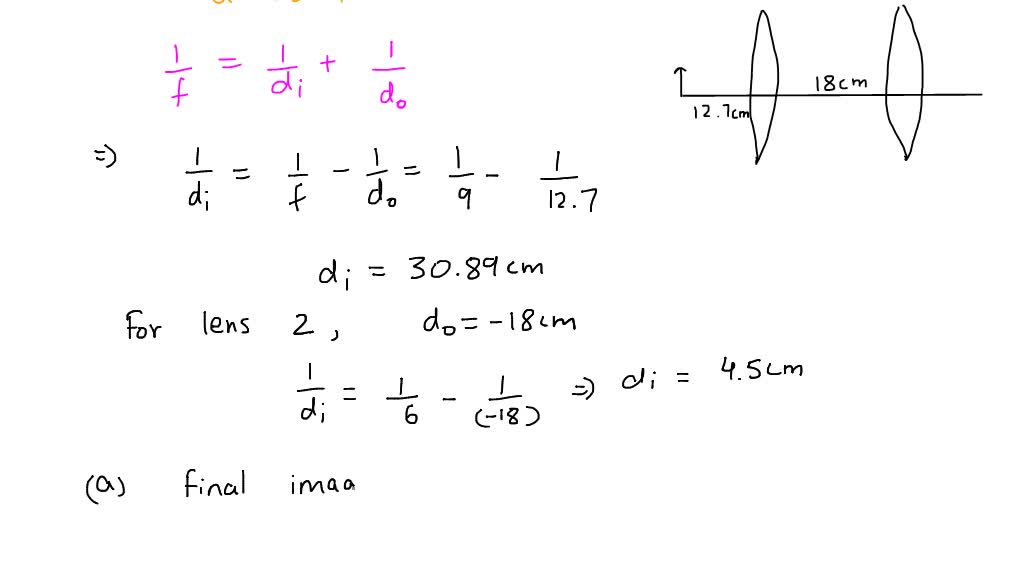 1/f = 1/di + 1/do
18cm
12.7cm
=> 1/di = 1/f - 1/do = 1/9 - 1/12.7
di = 30.89cm
For lens 2, do = -18cm
1/di = 1/6 - 1/(-18) => di = 4.5cm
(a) final imaa